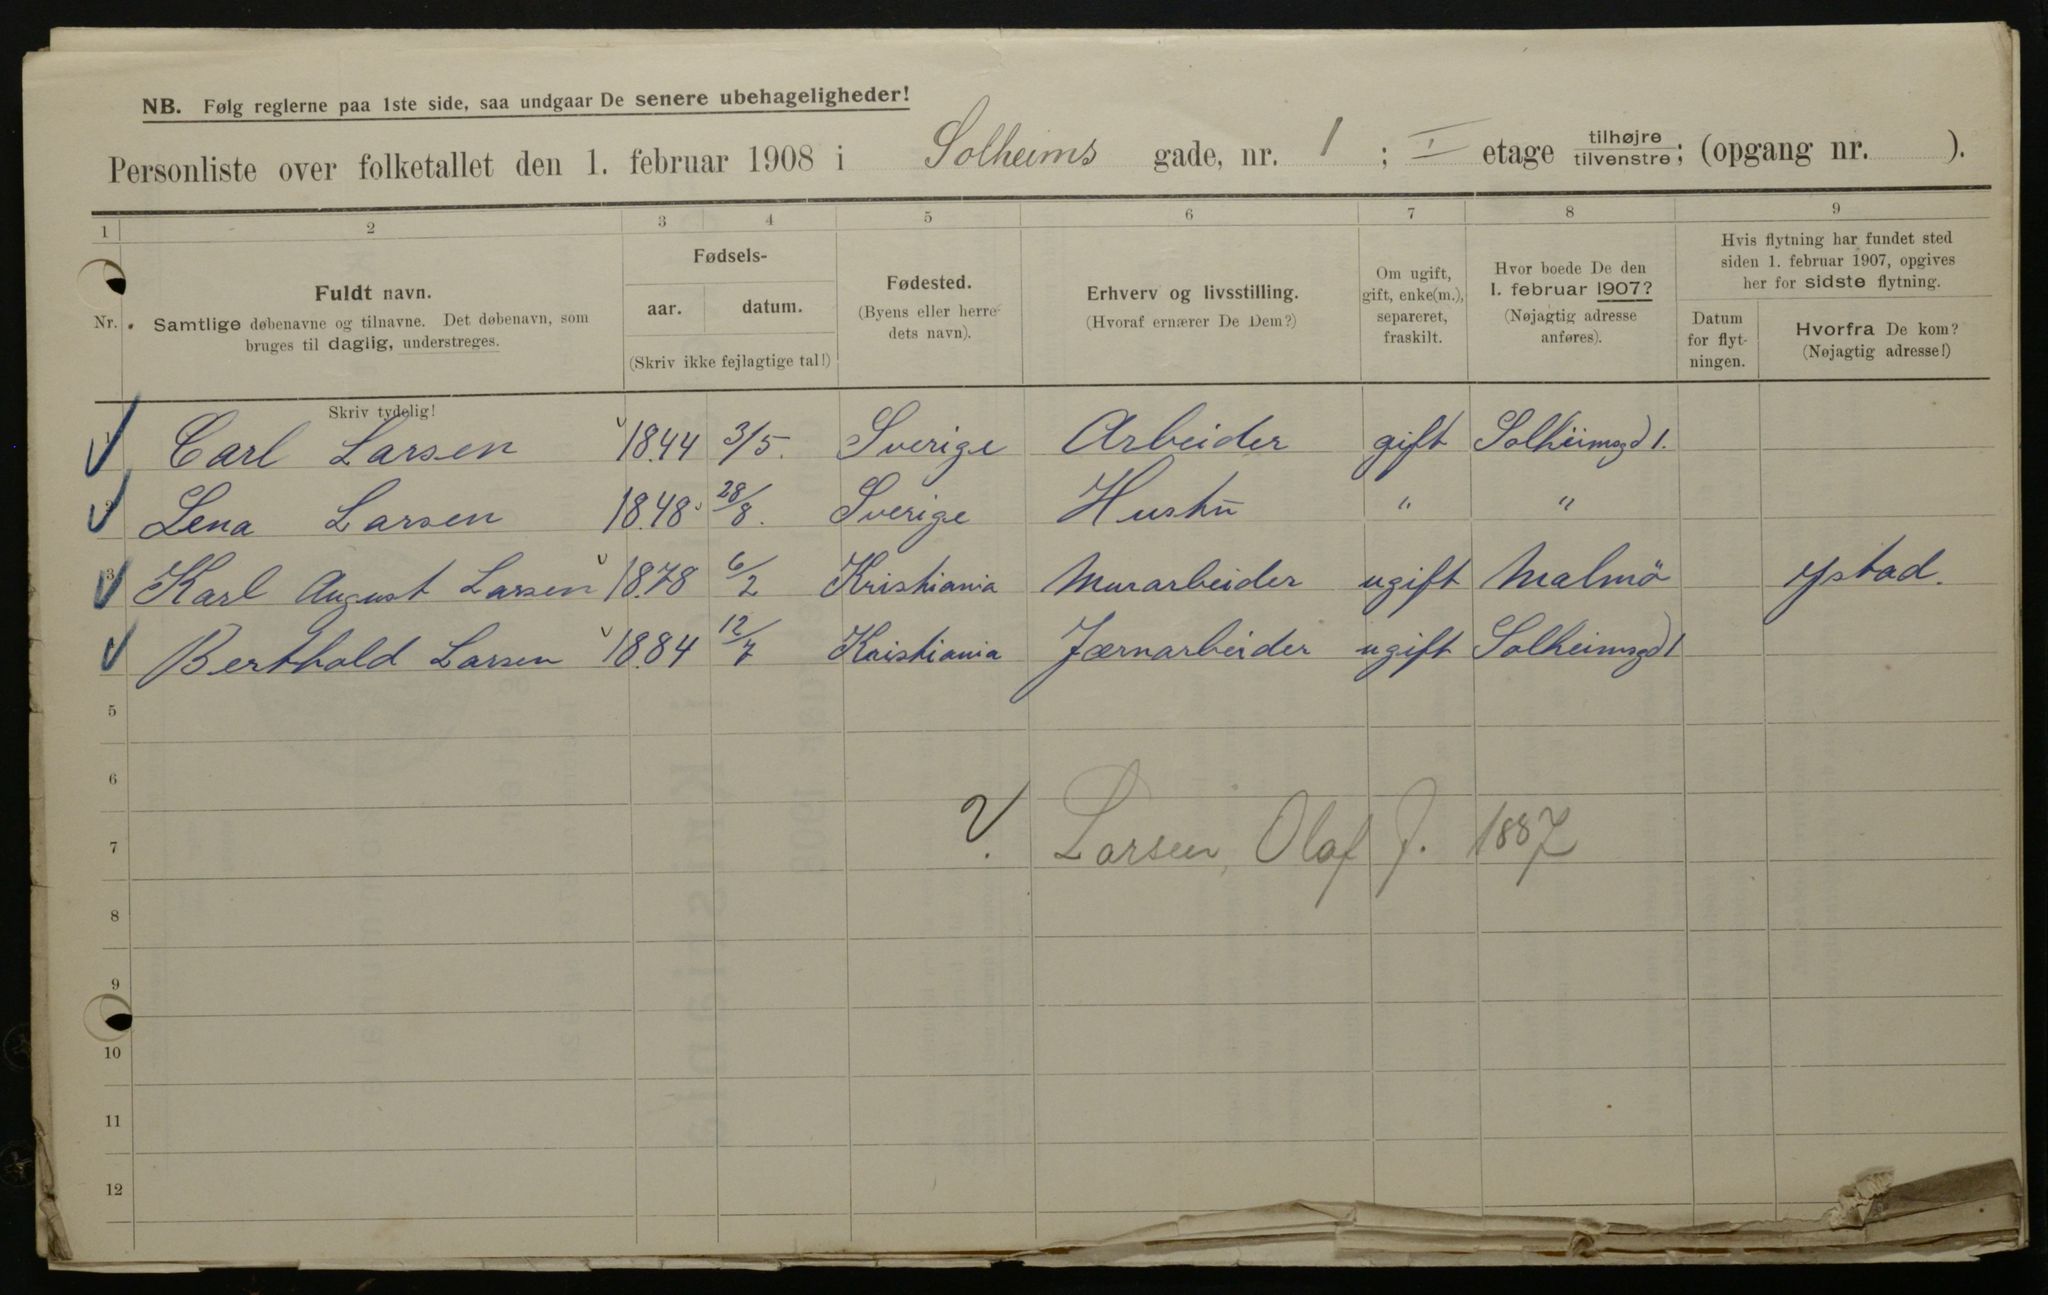 NB. Følg reglerne paa 1ste side, saa undgaar De senere ubehageligheder!
Personliste over folketallet den 1. februar 1908 i Solheims gade, nr. 1 ; I etage tilhøjre/tilvenstre; (opgang nr. ).
1 2 3 4 5 6 7 8 9
Nr.
Fuldt navn.
Samtlige døbenavne og tilnavne. Det døbenavn, som
bruges til daglig, understreges.
Skriv tydelig!
Fødsels-
aar. datum.
(Skriv ikke fejlagtige tal!)
Fødested.
(Byens eller herre-
dets navn).
Erhverv og livsstilling.
(Hvoraf ernærer De Dem?)
Om ugift,
gift, enke(m.),
separeret,
fraskilt.
Hvor boede De den
1. februar 1907?
(Nøjagtig adresse
anføres).
Hvis flytning har fundet sted
siden 1. februar 1907, opgives
her for sidste flytning.
Datum
for flyt-
ningen.
Hvorfra De kom?
(Nøjagtig adresse!)
1 Carl Larsen 1844 3/5. Sverige Arbeider gift Solheimsgd 1.
2 Lena Larsen 1848 28/8. Sverige Hustr̄ " "
3 Karl August Larsen 1878 6/2 Kristiania Murarbeider ugift Malmö Ystad.
Berthold Larsen 1884 12/7 Kristiania Jærnarbeider ugift Solheimsgd 1
5
6
7 Larsen, Olaf J. 1887
8
9
10
11
12